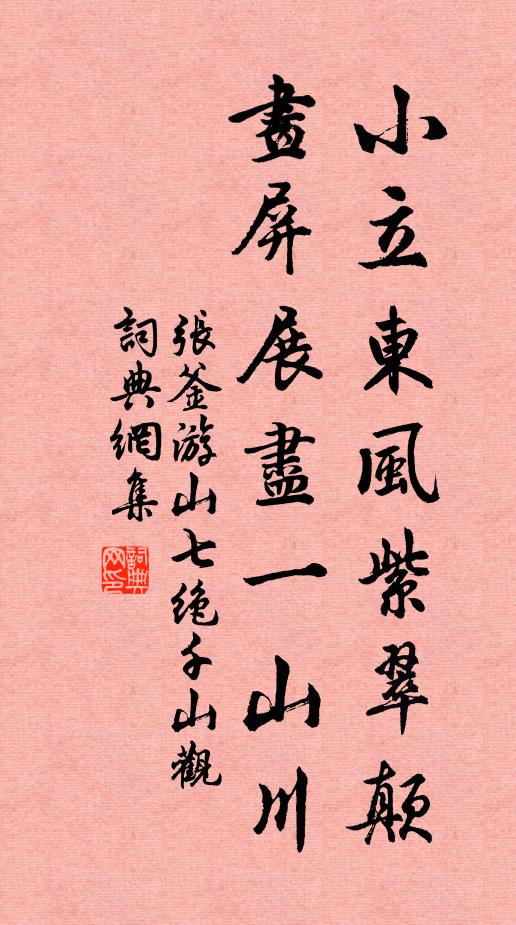 小立東風紫翠顛
畫屏展盡一山川
張釜游山七絶千山觀
詞典網集
詞典网印